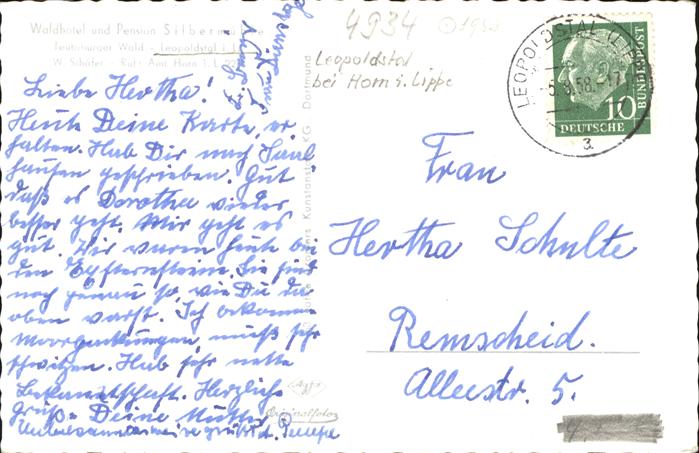 Waldhotel und Pension Silbermühle
Teutoburger Wald - Leopoldstal i. L.
W. Schäfer - Ruf: Amt Horn i. L.
4934
1958
Leopoldstal
bei Horn i. Lippe
LEOPOLDSTAL
5.9.58.-17
a
DEUTSCHE
BUNDESPOST
10
Liebe Hertha!
Heute Deine Karte er
halten. Hab Dir nach
hausen geschrieben. Gut
daß es Dorothea wieder
besser geht. Mir geht es
gut. Wir waren heute bei
den Sie sind
noch genau so wie Du da
oben warst. Ich bekomme
Moorpackungen, muß sehr
schwitzen. Hab sehr nette
Bekanntschaft. Herzliche
Grüße Deine Mutter
Unbekannterweise grüßt
Frau
Hertha Schulte
Remscheid.
Alleestr. 5.
Kunstanstalt KG Dortmund
Agfa
Originalfoto